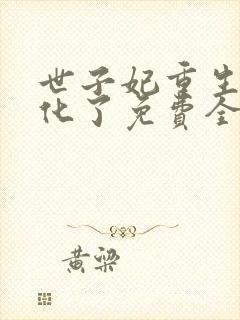 世子妃重生
化了免费全
黄梁